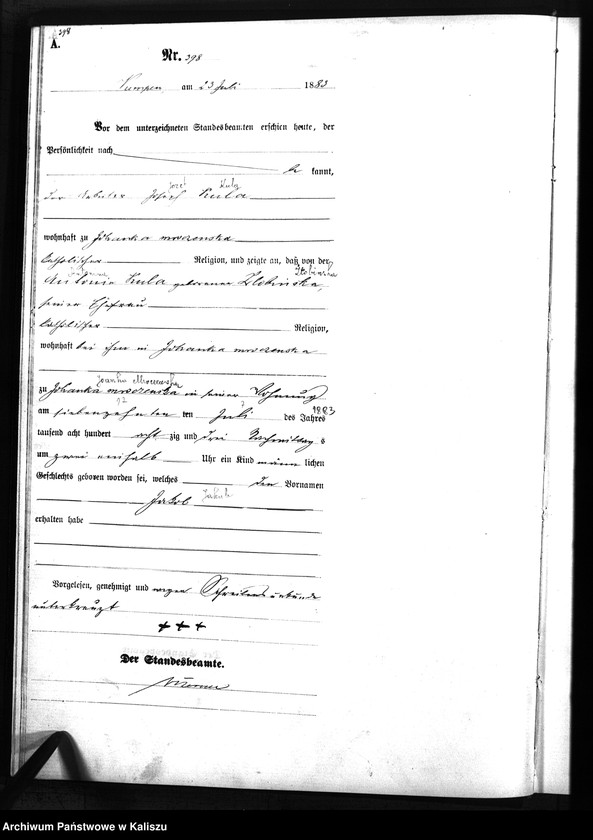 398
A.
Nr. 398
Kempen, am 23 Juli 1883
Vor dem unterzeichneten Standesbeamten erschien heute, der
Persönlichkeit nach
be kannt,
Jozef Kula
der Josef Kula
wohnhaft zu Johanka mroczenska
katholischer Religion, und zeigte an, daß von der
Antonie Kula geborenen Zlobinska,
seiner Ehefrau
katholischer Religion,
wohnhaft bei ihm in Johanka mroczenska
Joanka Mroczenska
zu Johanka mroczenska in seiner Wohnung
17 7 1883
am siebenzehnten ten Juli des Jahres
tausend acht hundert acht zig und drei Nachmittag s
um zwei einhalb Uhr ein Kind männ lichen
Geschlechts geboren worden sei, welches den Vornamen
Jakob Jakub
erhalten habe
Vorgelesen, genehmigt und wegen Schreibensunkunde
unterkreuzt
+++
Der Standesbeamte.
Archiwum Państwowe w Kaliszu